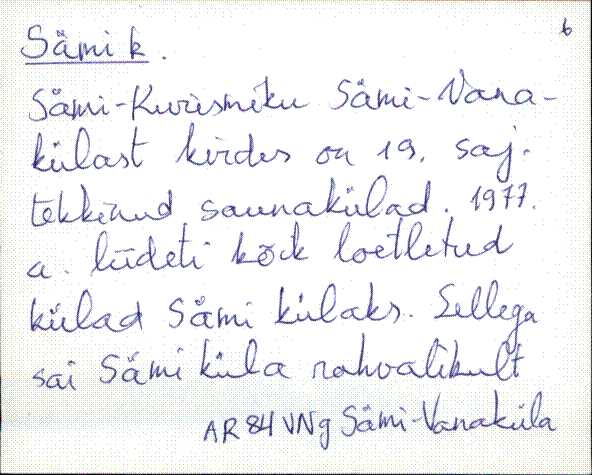 6
Sämi k.
Sämi-Kurismiku Sämi-Vana-
külast kirdes on 19. saj.
tekkinud saunakülad. 1977.
a. liideti kõik loetletud
külad Sämi külaks. Sellega
sai Sämi küla rahvalikult
AR 84 VNg Sämi-Vanaküla